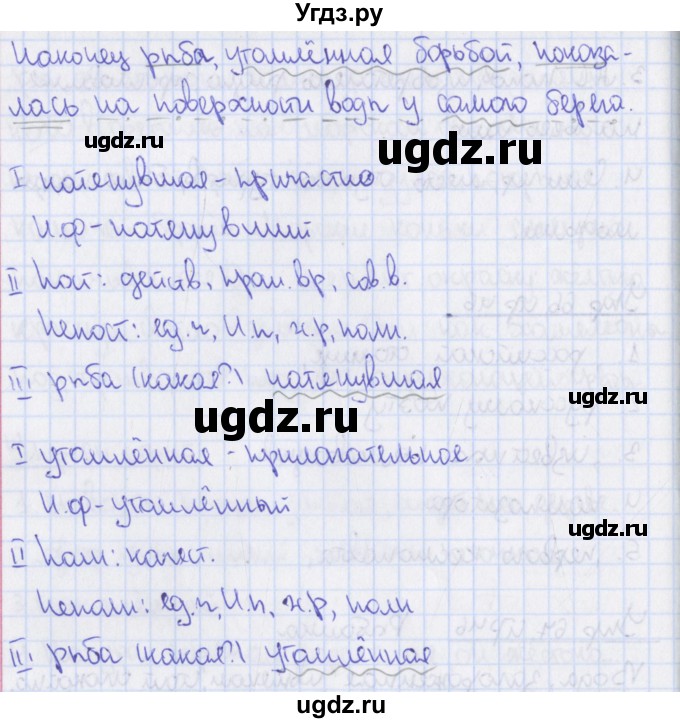 Угдз.ру
Наконец рыба, утомлённая борьбой, показа-
лась на поверхности воды у самого берега.
ugdz.ru ugdz.ru
I натянувшая – причастие
Н.ф – натянувший
ugdz.ru
II Пост: действ, прош. вр, сов. в.
Непост: ед.ч, И.п, ж.р, полн.
III рыба (какая?) натянувшая
ugdz.ru
ugdz.ru
I утомлённая – прилагательное
Н.ф – утомлённый
ugdz.ru
ugdz.ru
II Пост: качест.
Непост: ед.ч, И.п, ж.р, полн
III рыба (какая?) утомлённая
ugdz.ru
ugdz.ru